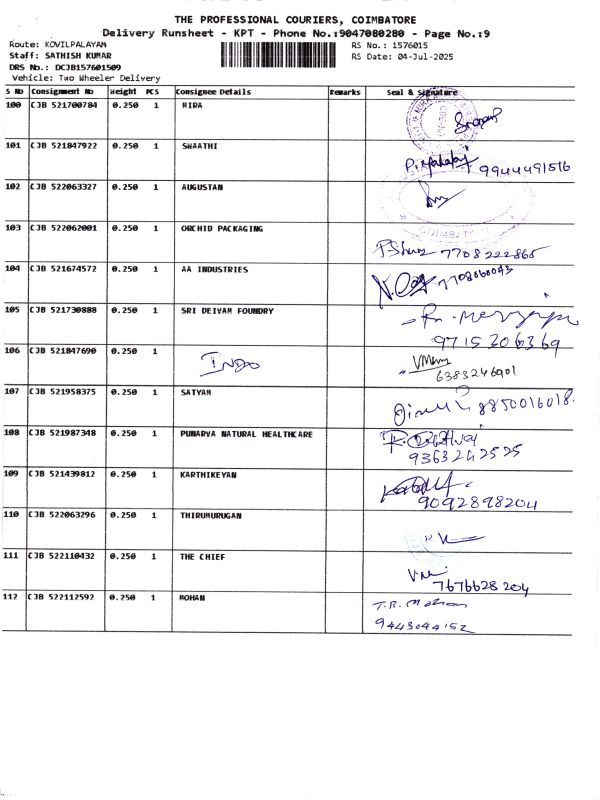 THE PROFESSIONAL COURIERS, COIMBATORE
Delivery Runsheet - KPT - Phone No.:9047080280 - Page No.:9
Route: KOVILPALAYAM
Staff: SATHISH KUMAR
DRS No.: DCJB157601509
Vehicle: Two Wheeler Delivery
RS No.: 1576015
RS Date: 04-Jul-2025
S No Consignment No Weight PCS Consignee Details Remarks Seal & Signature
100 CJB 521700784 0.250 1 MIRA
101 CJB 521847922 0.250 1 SWAATHI 9944491516
102 CJB 522063327 0.250 1 AUGUSTAN
103 CJB 522062001 0.250 1 ORCHID PACKAGING 7708222865
104 CJB 521674572 0.250 1 AA INDUSTRIES 7708060043
105 CJB 521730888 0.250 1 SRI DEIVAM FOUNDRY 9715206369
106 CJB 521847690 0.250 1 INDO 6383246901
107 CJB 521958375 0.250 1 SATYAM 8850016018.
108 CJB 521987348 0.250 1 PUNARVA NATURAL HEALTHCARE 9363242525
109 CJB 521439812 0.250 1 KARTHIKEYAN 9092898204
110 CJB 522063296 0.250 1 THIRUMURUGAN
111 CJB 522110432 0.250 1 THE CHIEF 7676628204
112 CJB 522112592 0.250 1 MOHAN T.R. Mohan
9443044152